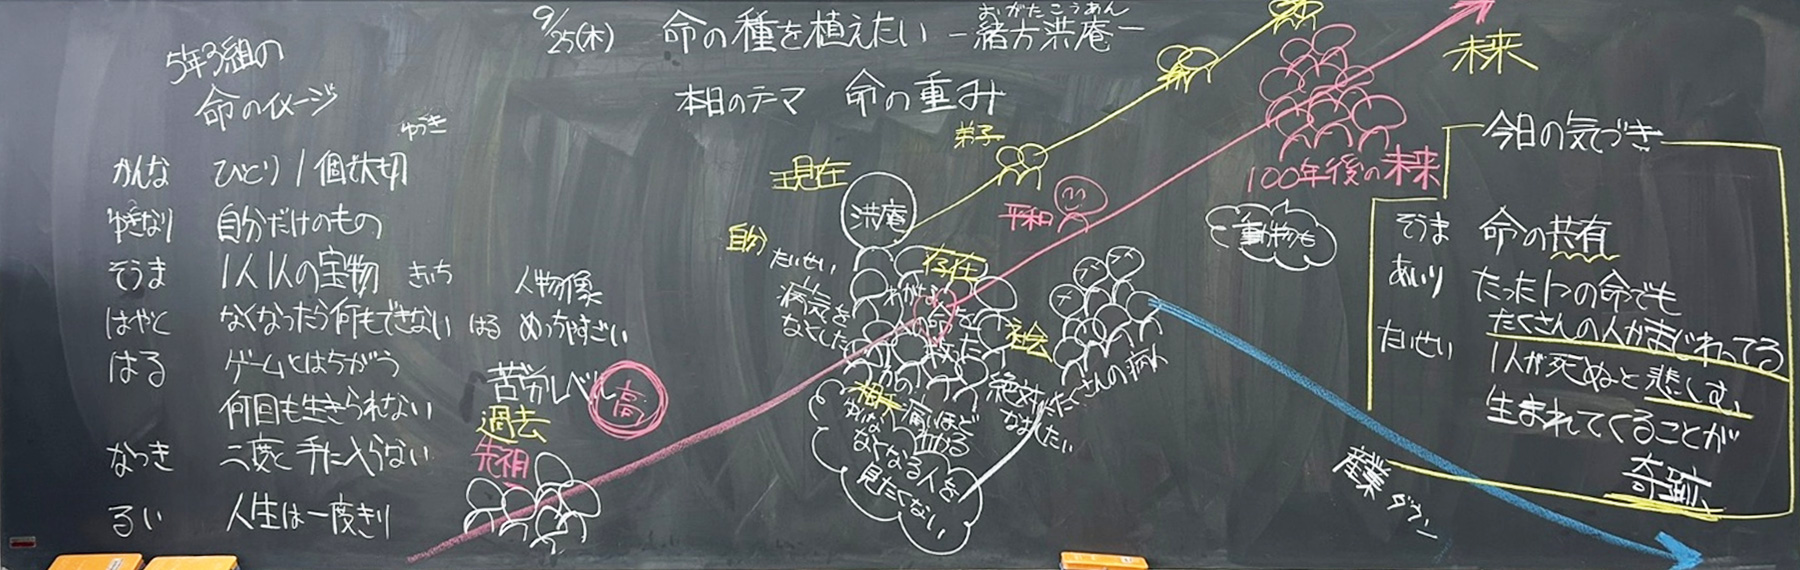 9/25(木) 命の種を植えたい －緒方洪庵－
おがたこうあん
本日のテーマ 命の重み
5年3組の
命のイメージ
ゆづき
かんな ひとり1個大切
ゆきなり 自分だけのもの
そうま 1人1人の宝物 きいち
はやと なくなったら何もできない
はる ゲームとはちがう
何回も生きられない
なつき 二度と手に入らない
るい 人生は一度きり
人物像
はる めっちゃすごい
苦労レベル 高
過去
先祖
現在
自分
洪庵
たいせい
病気を
なくしたい
存在
命を
救った
社会
相手
なくなる人を
見たくない
絶対に
なおしたい
たくさんの病人
弟子
平和
未来
100年後の未来
動物も
産業ダウン
今日の気づき
そうま 命の共有
あいり たった1つの命でも
たくさんの人がまじわってる
たいせい 1人が死ぬと悲しむ、
生まれてくることが
奇跡